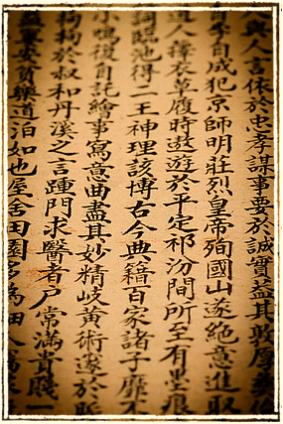 與人言依於忠孝謀事要於誠實蓋其敦厚
自李自成犯京師明莊烈皇帝殉國山遂絕意進取
道人衣草履時遨遊於平定祁汾間所至有墨痕
詞臨池得二王神理該博古今典籍百家諸子靡不
小鳴後自託繪事寫意曲盡其妙精岐黃術邃於
拘拘於叔和丹溪之言踵門求醫者戶常滿貴賤一
安貧樂道泊如也屋舍田園多為